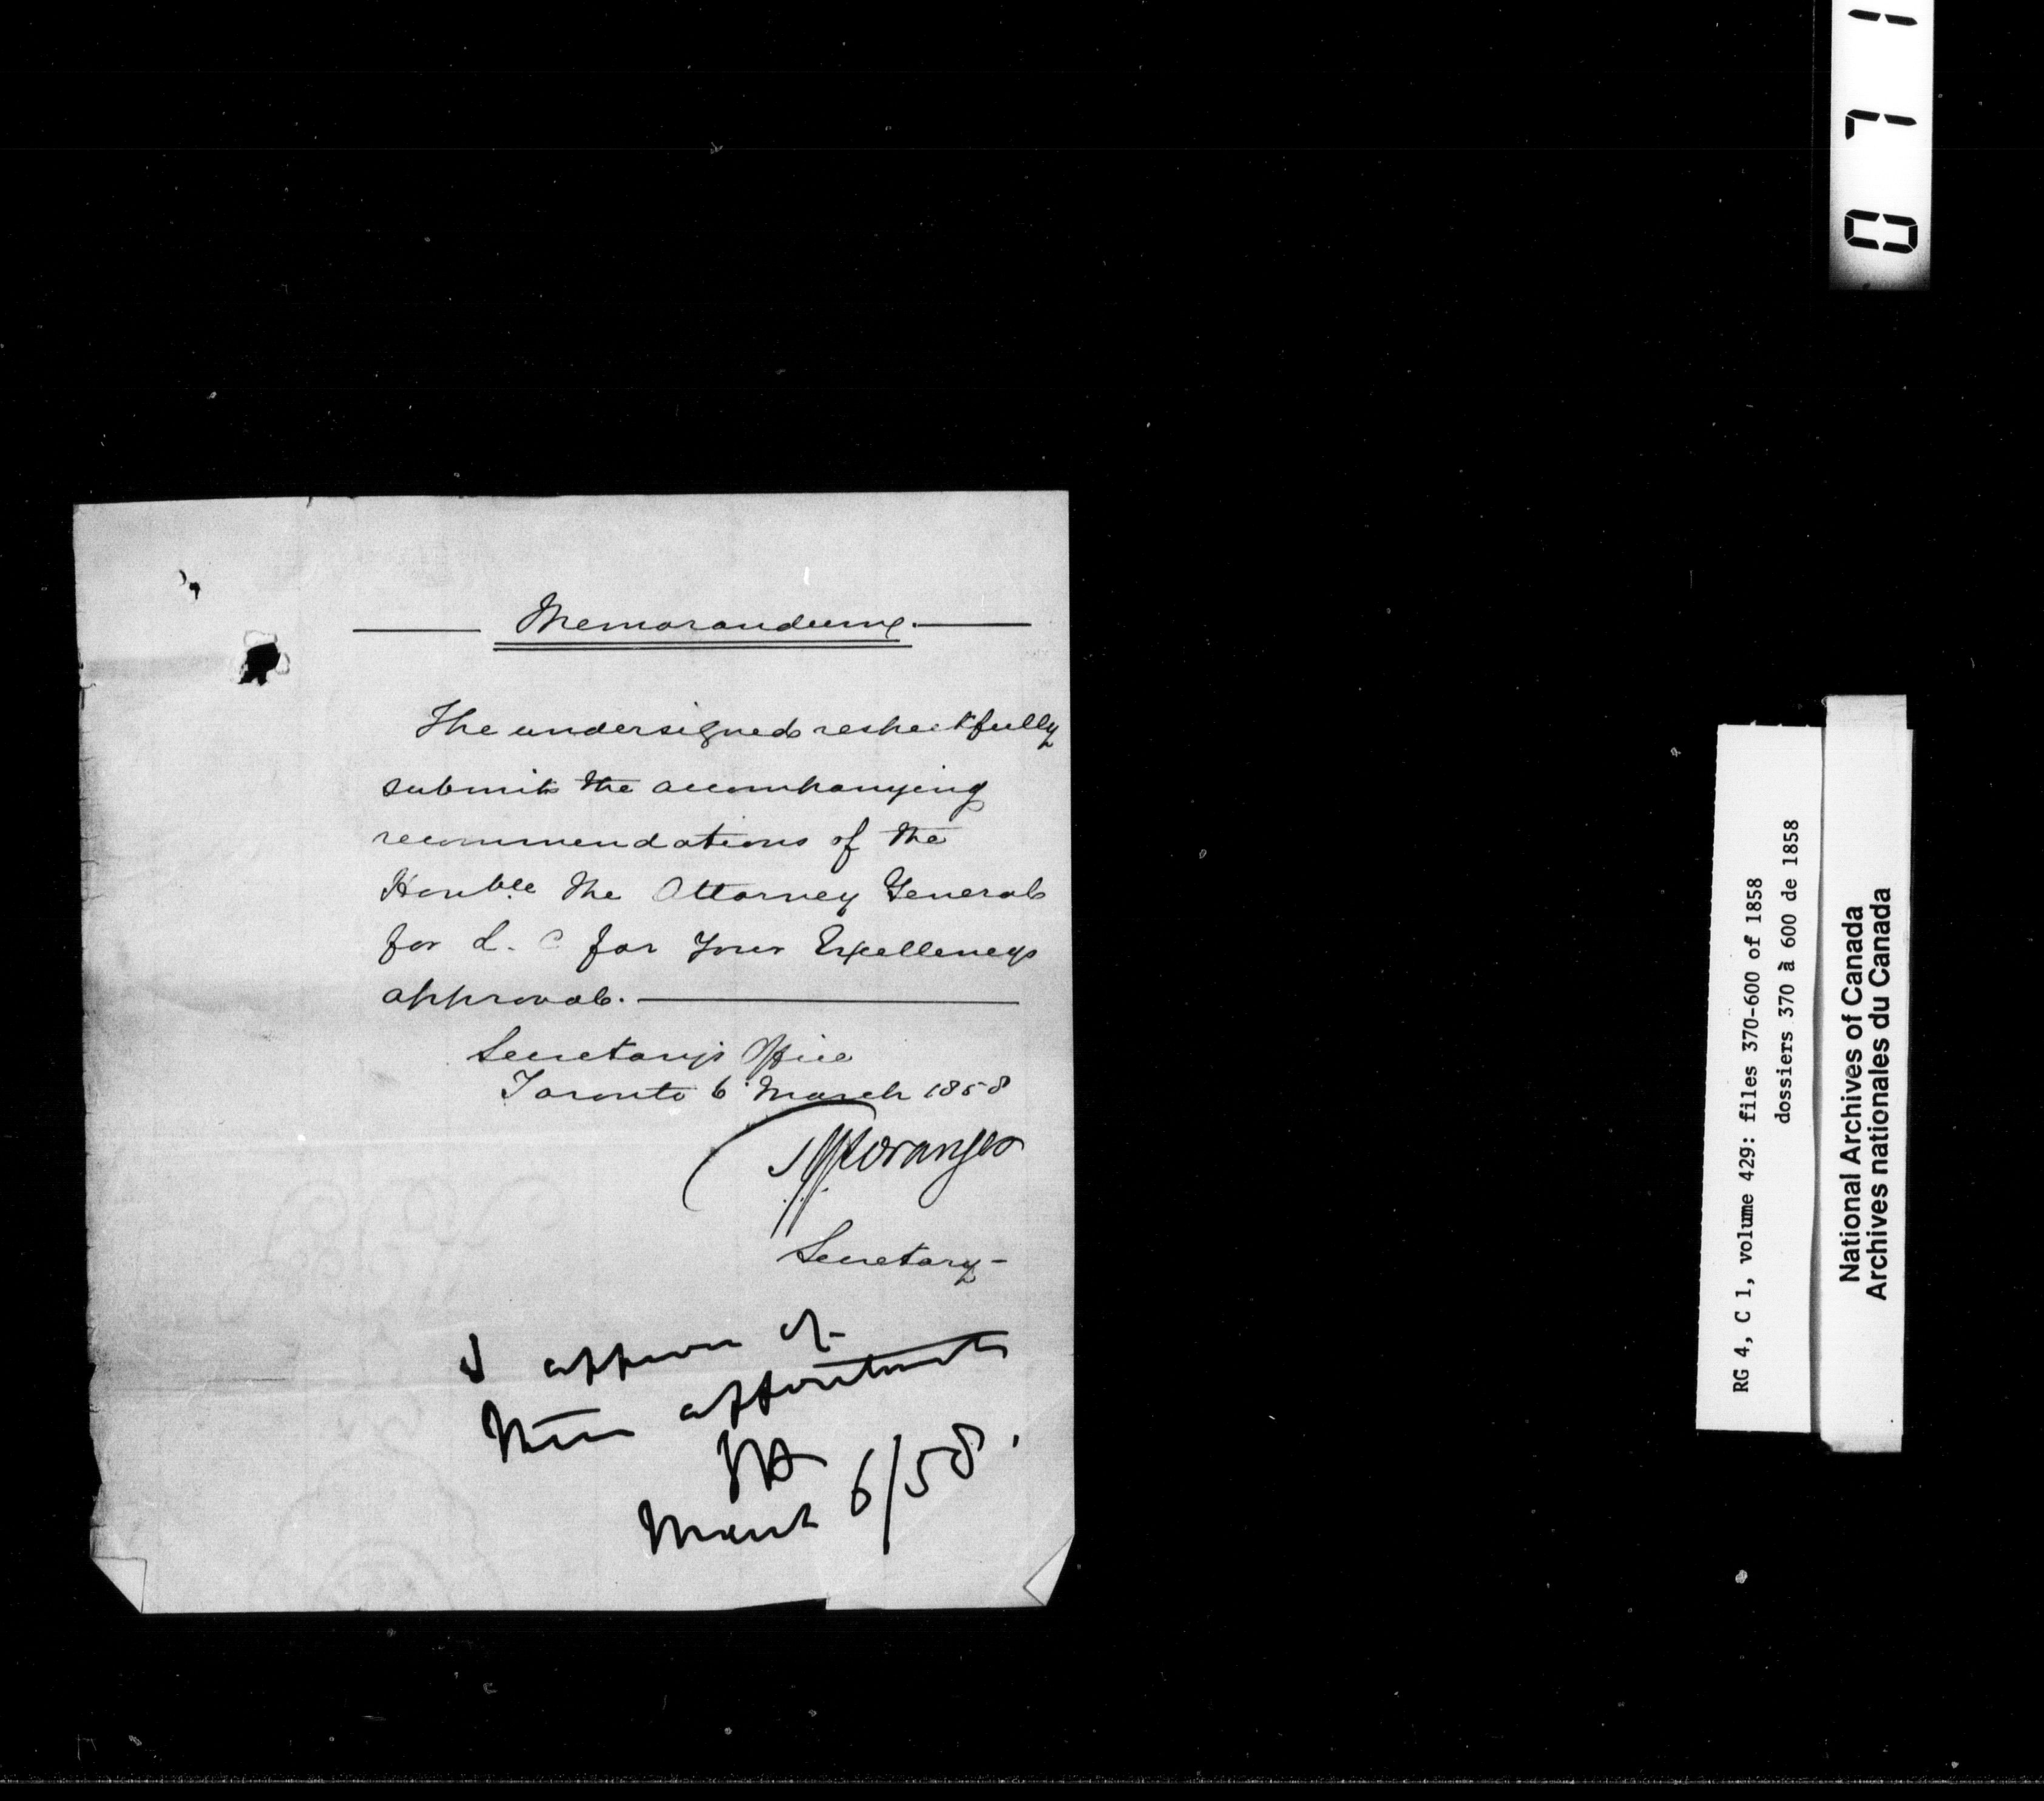 Memorandum.
The undersigned respectfully
submits the accompanying
recommendations of the
Honble. the Attorney General
for L. C for Your Excellencys
approval.
Secretary's Office
Toronto 6 March 1858
TJJ Loranger
Secretary
I approve of
these appointments
March 6/58.
071
RG 4, C 1, volume 429: files 370-600 of 1858
dossiers 370 à 600 de 1858
National Archives of Canada
Archives nationales du Canada